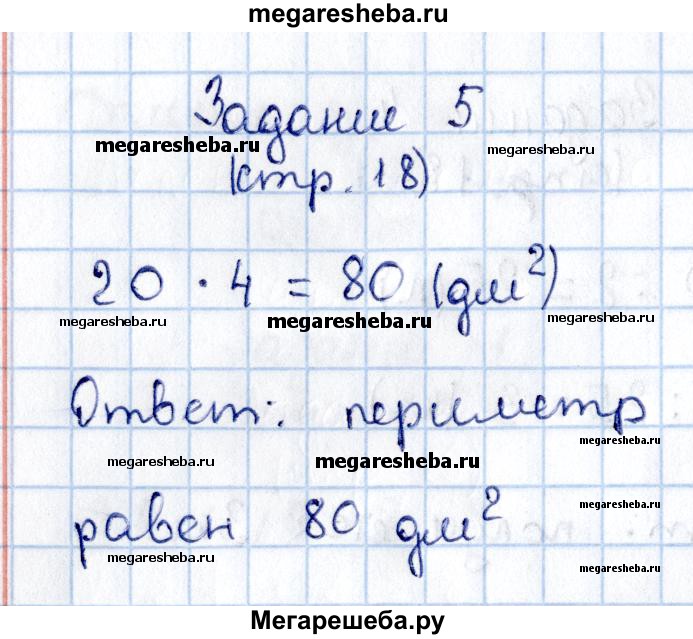 megaresheba.ru
Задание 5
megaresheba.ru megaresheba.ru
(стр. 18)
20 · 4 = 80 (дм²)
megaresheba.ru megaresheba.ru megaresheba.ru
Ответ: периметр
megaresheba.ru
megaresheba.ru megaresheba.ru
megaresheba.ru
равен 80 дм²
megaresheba.ru megaresheba.ru
Мегарешеба.ру